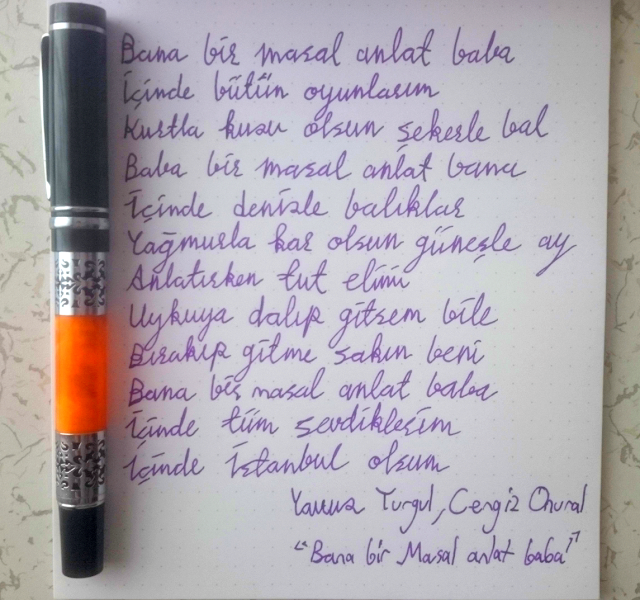 Bana bir masal anlat baba
İçinde bütün oyunlarım
Kurtla kuzu olsun şekerle bal
Baba bir masal anlat bana
İçinde denizle balıklar
Yağmurla kar olsun güneşle ay
Anlatırken tut elimi
Uykuya dalıp gitsem bile
Bırakıp gitme sakın beni
Bana bir masal anlat baba
İçinde tüm sevdiklerim
İçinde İstanbul olsun
Yavuz Turgul, Cengiz Onural
"Bana bir Masal anlat baba"